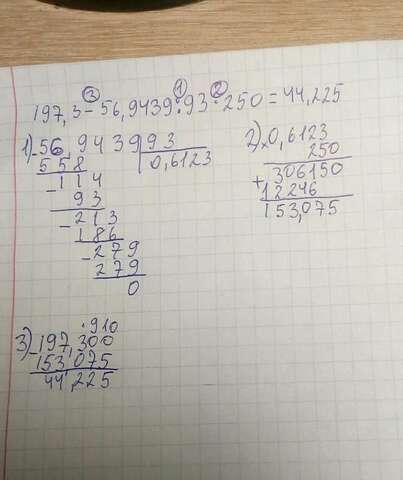 ③ ① ②
197,3-56,9439:93·250=44,225
1) -56,9439|93
558 |0,6123
-114
93
-213
186
-279
279
0
2) ×0,6123
250
+306150
12246
153,075
·910
3) -197,300
153,075
44,225